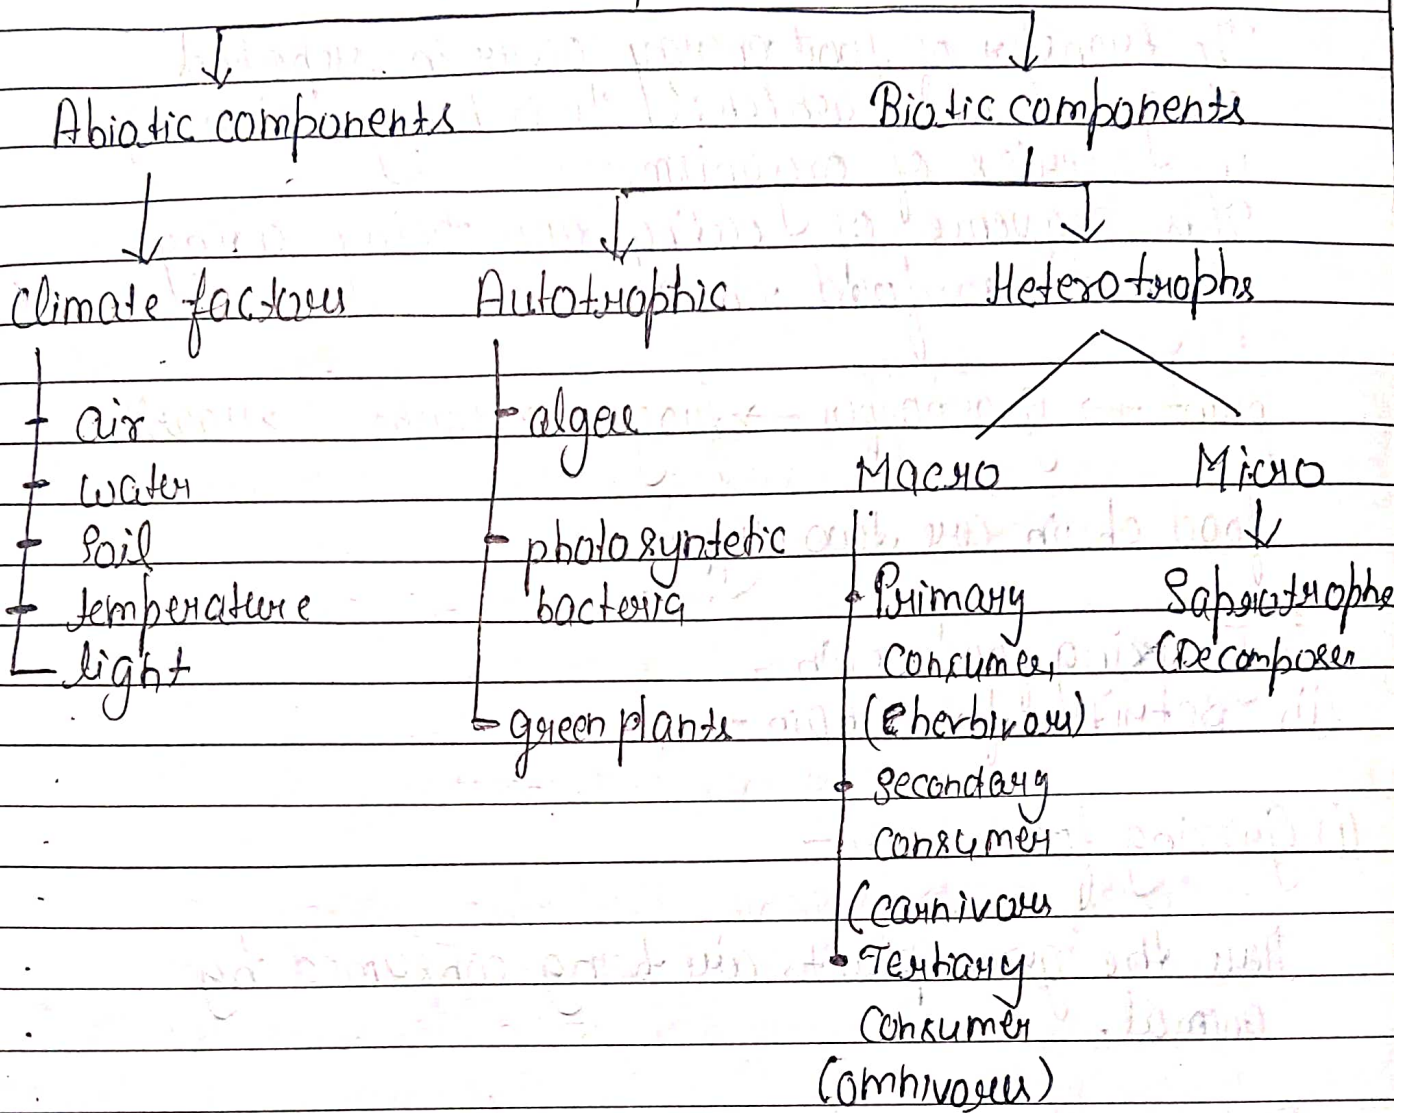 Abiotic components
Biotic components
Climate factors
Autotrophic
Heterotrophs
air
water
soil
temperature
light
algae
photosyntetic
bacteria
green plants
Macro
Primary
Consumer
(herbivors)
secondary
consumer
(carnivors
Tertiary
Consumer
(omnivores)
Micro
Saprotrophs
(Decomposer